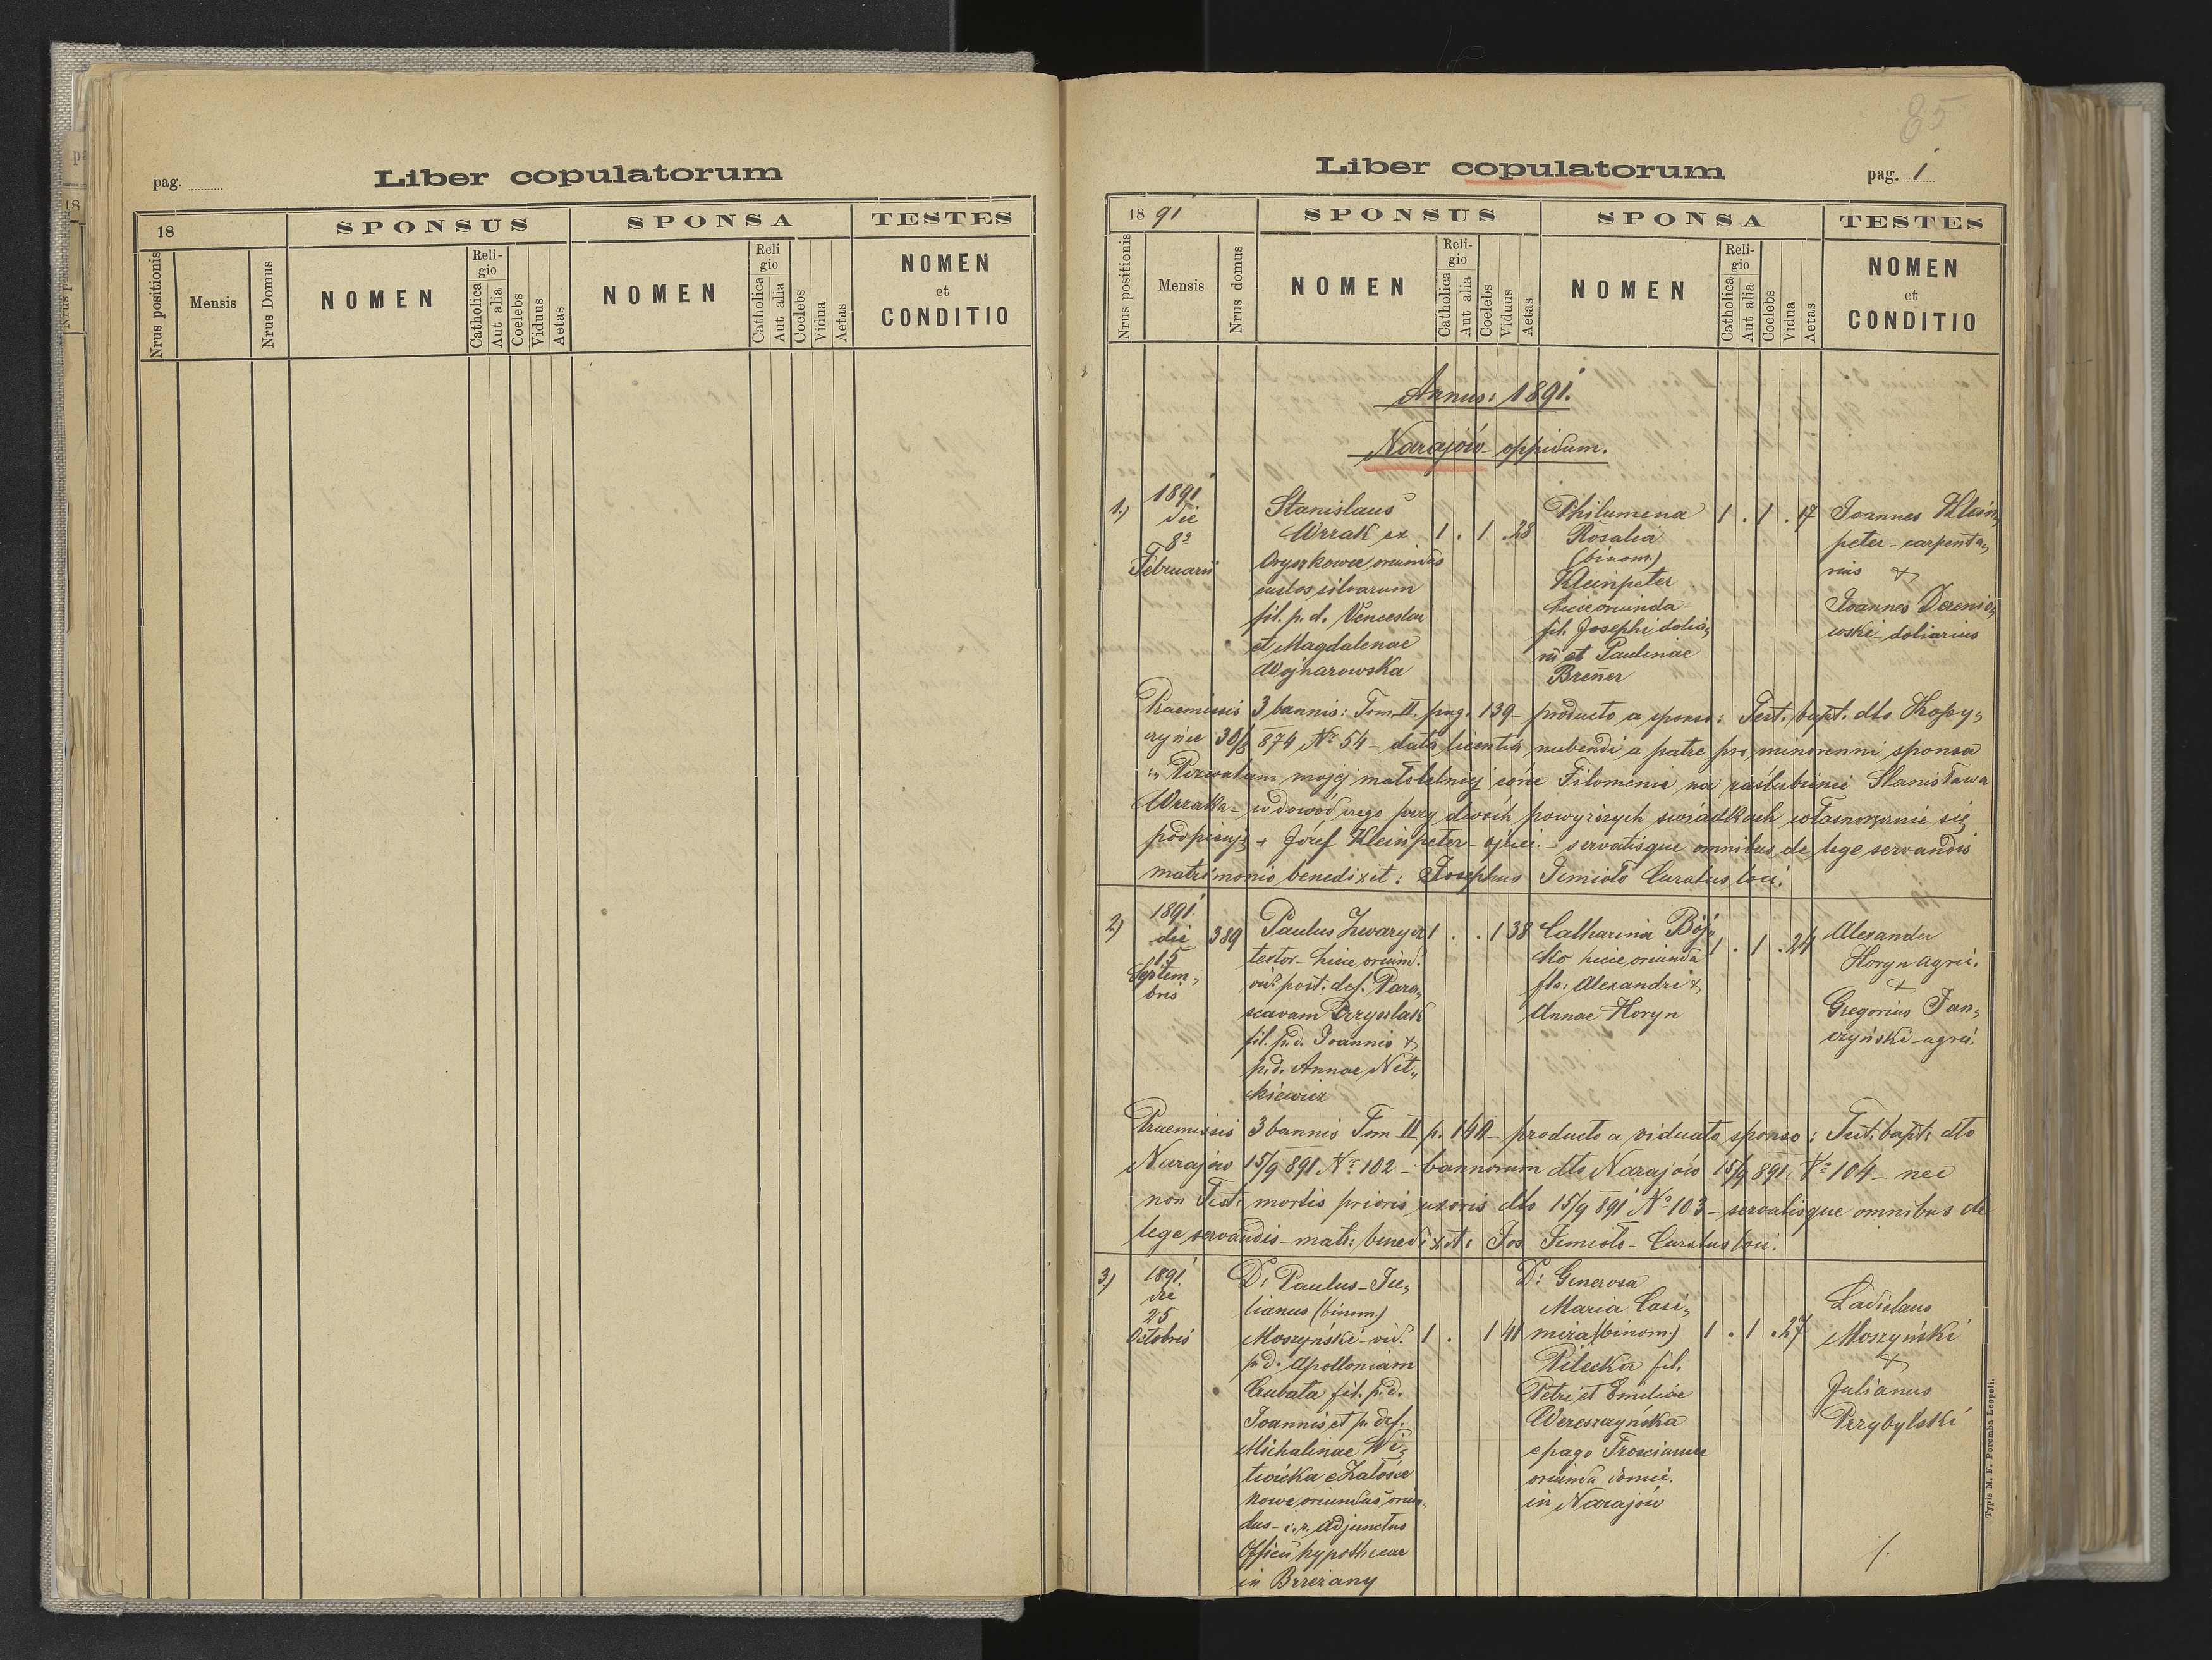 pag.
Liber copulatorum
18
SPONSUS
SPONSA
TESTES
Nrus positionis
Mensis
Nrus Domus
NOMEN
Religio
Catholica
Aut alia
Coelebs
Viduus
Aetas
NOMEN
Religio
Catholica
Aut alia
Coelebs
Vidua
Aetas
NOMEN
et
CONDITIO
85
Liber copulatorum
pag. 1
1891
SPONSUS
SPONSA
TESTES
Nrus positionis
Mensis
Nrus domus
NOMEN
Religio
Catholica
Aut alia
Coelebs
Viduus
Aetas
NOMEN
Religio
Catholica
Aut alia
Coelebs
Vidua
Aetas
NOMEN
et
CONDITIO
Annus: 1891.
Narajów oppidum.
1.)
1891
die
8a
Februarii
Stanislaus
Wrrak ex
oriundus
custos silvarum
fil. p. d. Venceslai
et Magdalenae
Wojnarowska
1 . 1 . 28
Philumena
Rosalia
(binom.)
Kleinpeter
hicce oriunda
fil. Josephi dolia„
rii et Paulinae
Breñer
1 . 1 . 17
Joannes Klein„
peter - carpenta„
rius &
Joannes Derenio„
wski - doliarius
Praemissis 3 bannis: Tom. II. pag. 139 - producto a sponso: Test. bapt. dto Kopy„
czyńce 30/8 874 Nr 54 - data licentia nubendi a patre pro minorenni sponsa
„ Pozwalam mojej małoletniej córce Filomenie na zaślubienie Stanisława
Wrraka - w dowód czego przy dwóch powyższych świadkach własnoręcznie się
podpisuję + Józef Kleinpeter ojciec. - servatisque omnibus de lege servandis
matrimonio benedixit: Josephus Temioło Curatus loci.
2)
1891.
die
15
Septem„
bris
389
Paulus Zwarycz
textor - hicce oriund.
vid. post. def. Para„
scevam Przyszlak
fil. p. d. Joannis &
p. d. Annae Net„
kiewicz
1 . . 1 38
Catharina Bojo
hicce oriunda
fla: Alexandri &
Annae Horyn
1 . 1 . 24
Alexander
Horyn agric.
&
Gregorius Jan„
czyński - agric.
Praemissis 3 bannis Tom II p. 140 - producto a viduato sponso: Test. bapt: dto
Narajów 15/9 891 Nr 102 - bannorum dto Narajów 15/9 891 Nr 104 - nec
non Test: mortis prioris uxoris dto 15/9 891 Nr 103 - servatisque omnibus de
lege servandis - matr: benedixit: Jos Temioło - Curatus loci.
3)
1891.
die
25
Octobris
D: Paulus - Ju„
lianus (binom.)
Moszyński - vid.
p. d. Apolloniam
Crubata fil. p. d.
Joannis et p. def.
Michalinae Wi„
twicka e Załośce
nowe oriundus oriun„
dus - c. r. adjunctus
Officii hypothecae
in Brzeżany
1 . 1 41
D: Generosa
Maria Casi„
mira (binom.)
Pilecka fil.
Petri et Emiliae
Wereszczyńska
e pago Trościaniec
oriunda domic.
in Narajów
1 . 1 . 27
Ladislaus
Moszyński
&
Julianus
Przybylski
Typis M. F. Poremba Leopoli.